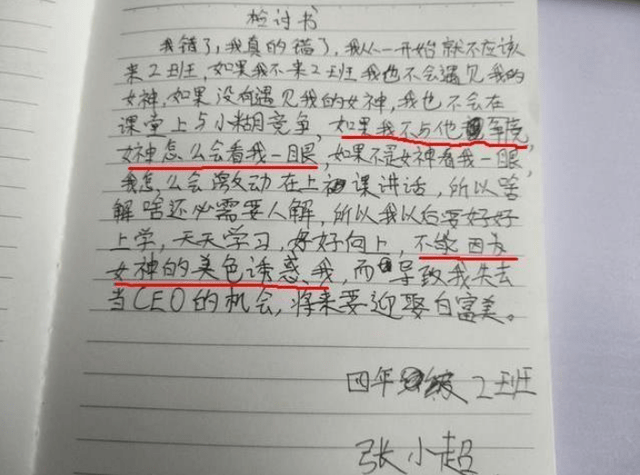 检讨书
我错了,我真的错了,我从一开始就不应该
来2班,如果我不来2班我也不会遇见我的
女神,如果没有遇见我的女神,我也不会在
课堂上与小胡竞争,如果我不与他竞争
女神怎么会看我一眼,如果不是女神看我一眼,
我怎么会激动在上课讲话,所以啥
解啥还必需要人解,所以我以后要好好
上学,天天学习,好好向上,不能因为
女神的美色诱惑、我,而导致我失去
当CEO的机会,将来要迎娶白富美。
四年级2班
张小超